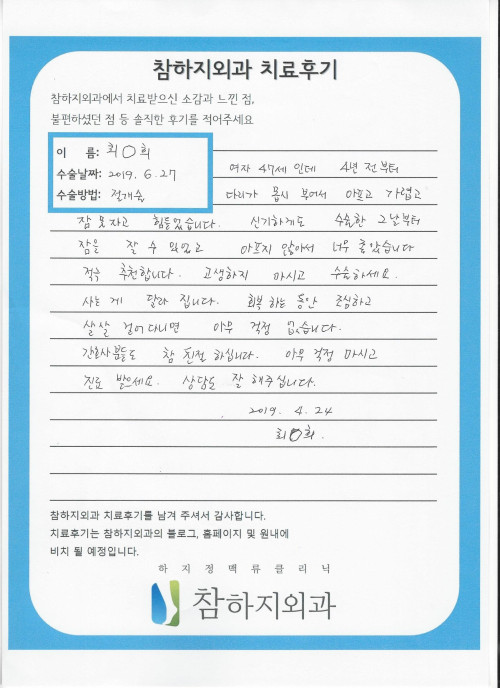 참하지외과 치료후기
참하지외과에서 치료받으신 소감과 느낀 점,
불편하셨던 점 등 솔직한 후기를 적어주세요
이 름: 최O희
수술날짜: 2019. 6. 27
수술방법: 절개술
여자 47세 인데 4년 전부터
다리가 몹시 부어서 아프고 가렵고
잠 못자고 힘들었습니다. 신기하게도 수술한 그날부터
잠을 잘 수 있었고 아프지 않아서 너무 좋았습니다
적극 추천합니다. 고생하지 마시고 수술하세요.
사는 게 달라 집니다. 회복 하는 동안 조심하고
살살 걸어다니면 아무 걱정 없습니다.
간호사분들도 참 친절 하십니다. 아무 걱정 마시고
진료 받으세요. 상담도 잘 해주십니다.
2019. 4. 24
최O희.
참하지외과 치료후기를 남겨 주셔서 감사합니다.
치료후기는 참하지외과의 블로그, 홈페이지 및 원내에
비치 될 예정입니다.
하지정맥류클리닉
참하지외과